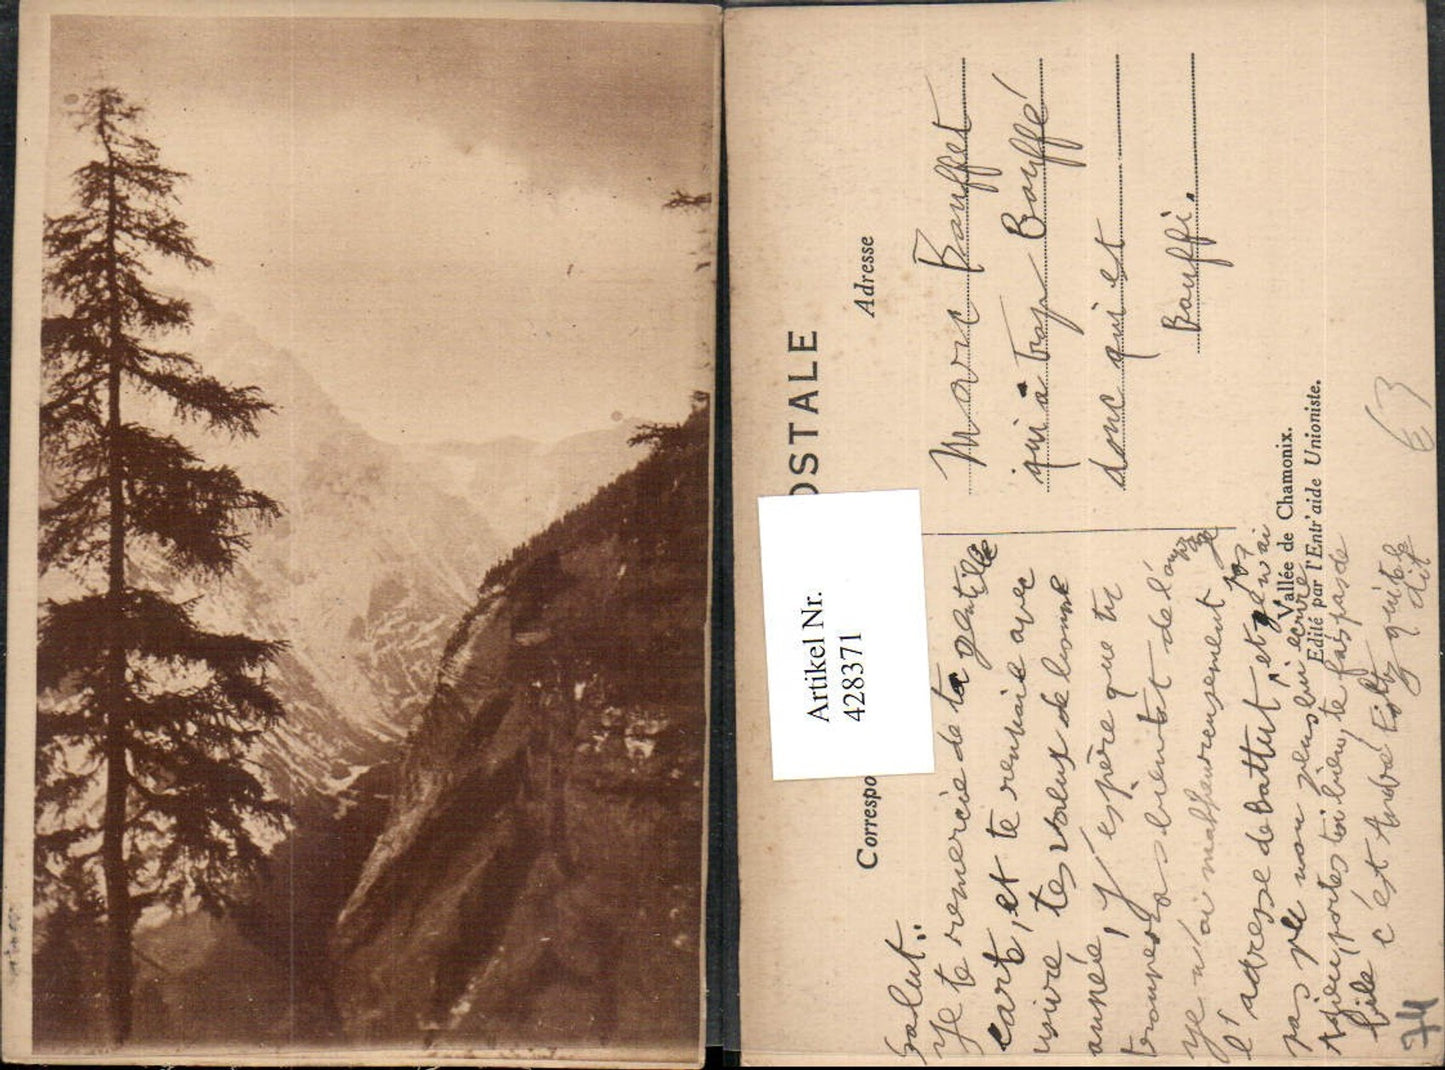 OSTALE
Correspo
Adresse
Artikel Nr.
428371
Salut..
Je te remercie de ta gentille
carte, et te renvoie avec
usure tes voeux de bonne
année, j'espère que tu
trouveras bientôt de l'ouvrage
je n'ai malheureusement pas
l'adresse de Battut, et je n'ai
pas pu non plus lui écrire
Adieu, portes toi bien, te fais pas de
bile c'est André qui te
le dit
Marc Bouffet
qui a trop Bouffé
donc qui est
Bouffi.
Vallée de Chamonix.
Edité par l'Entr'aide Unioniste.
€3
74